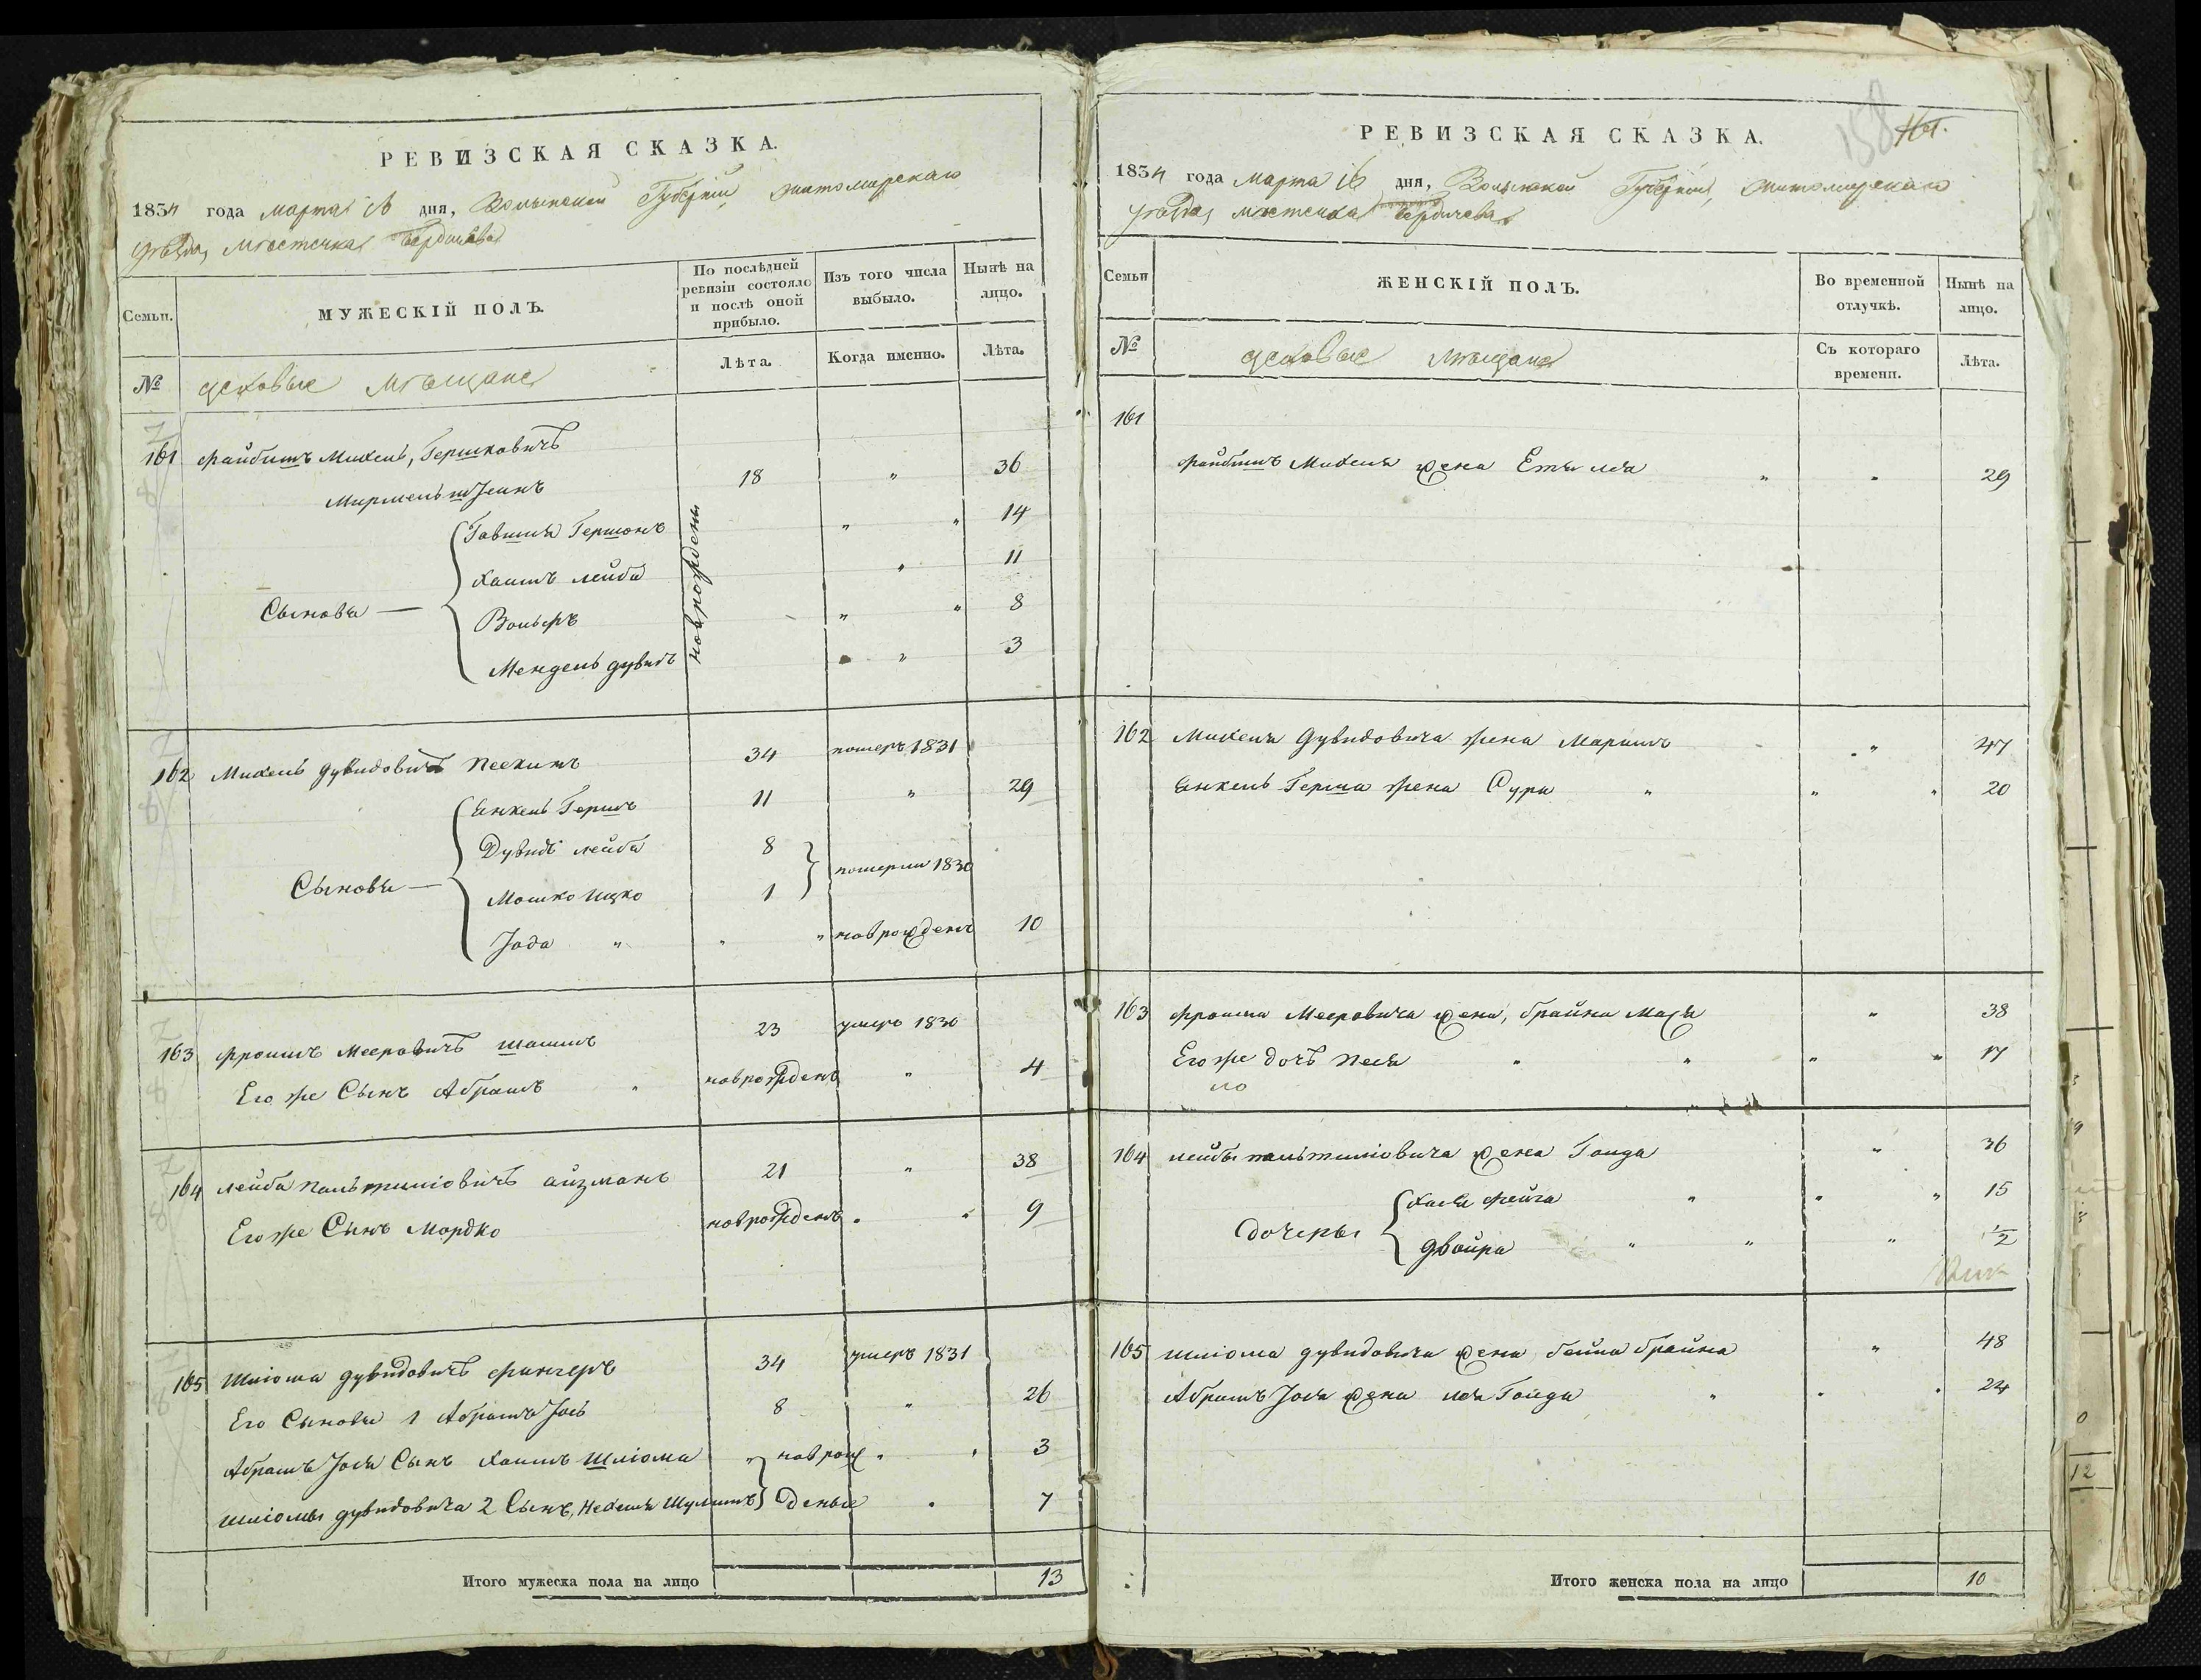 РЕВИЗСКАЯ СКАЗКА.
1834 года марта 16 дня, Волынской Губерніи житомирскаго
уѣзда, мѣстечка Бердичева
Семьи.
МУЖЕСКІЙ ПОЛЪ.
По послѣдней ревизіи состояло и послѣ оной прибыло.
Изъ того числа выбыло.
Нынѣ на лицо.
№
цеховые мѣщане
Лѣта.
Когда именно.
Лѣта.
161 Файбишъ Михель, Гершковичъ
18 " 36
Гершонъ " " 14
Хаимъ лейба " 11
Сыновья —
Вольфъ " " 8
Мендель дувидъ " 3
новрождены
162 Михель дувидовичъ 34 померъ 1831
Янкель Гершъ 11 " 29
Дувидъ лейба 8
Сыновья — померли 1830
Мошко Ицко 1
" " " новрожденъ 10
163 Фроимъ Мееровичъ 23 умеръ 1830
Его же Сынъ Абрамъ " новрожденъ " 4
164 лейба айзманъ 21 " 38
Его же Сынъ Мордко новрожденъ " " 9
165 Шліома дувидовичъ 34 умеръ 1831
Его Сыновья 1 Абрамъ Іось 8 " 26
Абрамъ Іося Сынъ Хаимъ Шліома " новрож " " 3
Шліомы дувидовича 2 Сынъ, деные " 7
Итого мужеска пола на лицо 13
158
161.
РЕВИЗСКАЯ СКАЗКА.
1834 года марта 16 дня, Волынской Губерніи, житомирскаго
уѣзда, мѣстечка Бердичева
Семьи
ЖЕНСКІЙ ПОЛЪ.
Во временной отлучкѣ.
Нынѣ на лицо.
№
цеховые мѣщане
Съ котораго времени.
Лѣта.
161
Файбишъ Михеля жена " " 29
162 Михеля дувидовича жена Маріимъ " 47
Янкель Герша жена Сура " " " 20
163 Фроима Мееровича жена, брайна " 38
Его же дочь Песя " " " " 17
164 лейбы жена Голда " 36
Хася фейга " " " 15
Дочеры
Двойра " " " 1/2
165 Шліома дувидовича жена, бейла брайна " 48
Абрамъ Іося жена лея Голда " " " 24
Итого женска пола на лицо 10